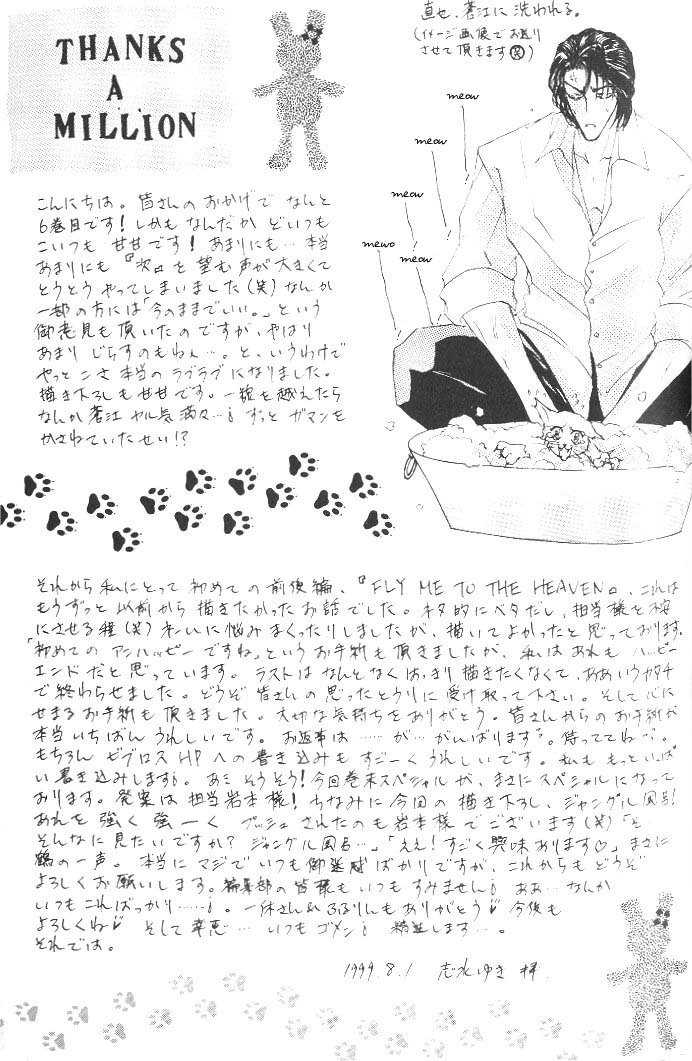 THANKS
A
MILLION
直也、蒼江に洗われる。
(イメージ画像でお送り
させて頂きます(笑))
meow
meow
meow
meow
mewo
こんにちは。皆さんのおかげでなんと
6巻目です!しかもなんだかどいつも
こいつも甘甘です!あまりにも…本当
あまりにも『次』を望む声が大きくて
とうとうやってしまいました(笑)なんか
一部の方には「今のままでいい。」という
御意見も頂いたのですが、やはり
あまりじらすのもねぇ…。と、いうわけで
やっとこさ本当のラブラブになりました。
描き下ろしも甘甘です。一線を越えたら
なんか蒼江ヤル気満々…! ずっとガマンを
かさねていたせい!?
それから私にとって初めての前後編、『FLY ME TO THE HEAVEN』、これは
もうずっと以前から描きたかったお話でした。ネタ的にベタだし、担当様を不安
にさせる程(笑)大いに悩みまくったりしましたが、描いてよかったと思っております。
「初めてのアンハッピーですね」というお手紙も頂きましたが、私はあれもハッピー
エンドだと思っています。ラストはなんとなくはっきり描きたくなくて、ああいうカタチ
で終わらせました。どうぞ皆さんの思ったとうりに受け取って下さい。そして心に
せまるお手紙も頂きました。大切な気持ちをありがとう。皆さんからのお手紙が
本当いちばんうれしいです。お返事は……が…がんばります。待っててね…。
もちろんビブロスHPへの書き込みもすごーくうれしいです。私ももっといっぱ
い書き込みします。あ、そうそう!今回巻末スペシャルが、まさにスペシャルになって
おります。発案は担当岩本様!ちなみに今回の描き下ろし、ジャングル風呂!
あれを強く強ーくプッシュされたのも岩本様でございます(笑)「え、
そんなに見たいですか?ジャングル風呂…」「ええ!すごく興味あります♡」まさに
鶴の一声。本当にマジでいつも御迷惑ばかりですが、これからもどうぞ
よろしくお願いします。編集部の皆様もいつもすみません! ああ…なんか
いつもこればっかり……!。一休さん&るるりんもありがとう♡今後も
よろしくね♡ そして幸恵…いつもゴメン! 精進します…。
それでは。
1999.8.1 志水ゆき 拝